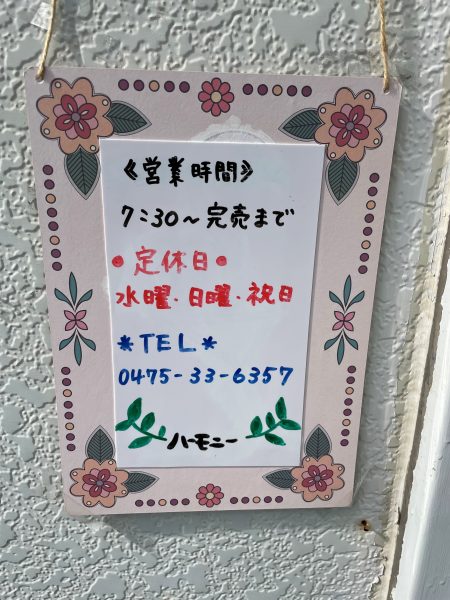 《営業時間》
7:30～完売まで
•定休日•
水曜・日曜・祝日
*TEL*
0475-33-6357
ハーモニー